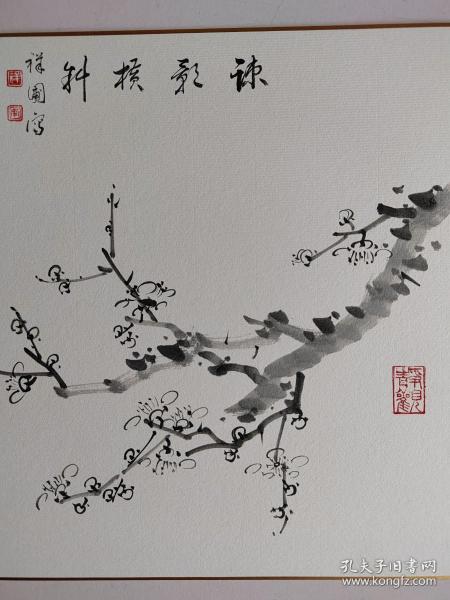 疎影横斜
祥圃写
孔夫子旧书网
www.kongfz.com